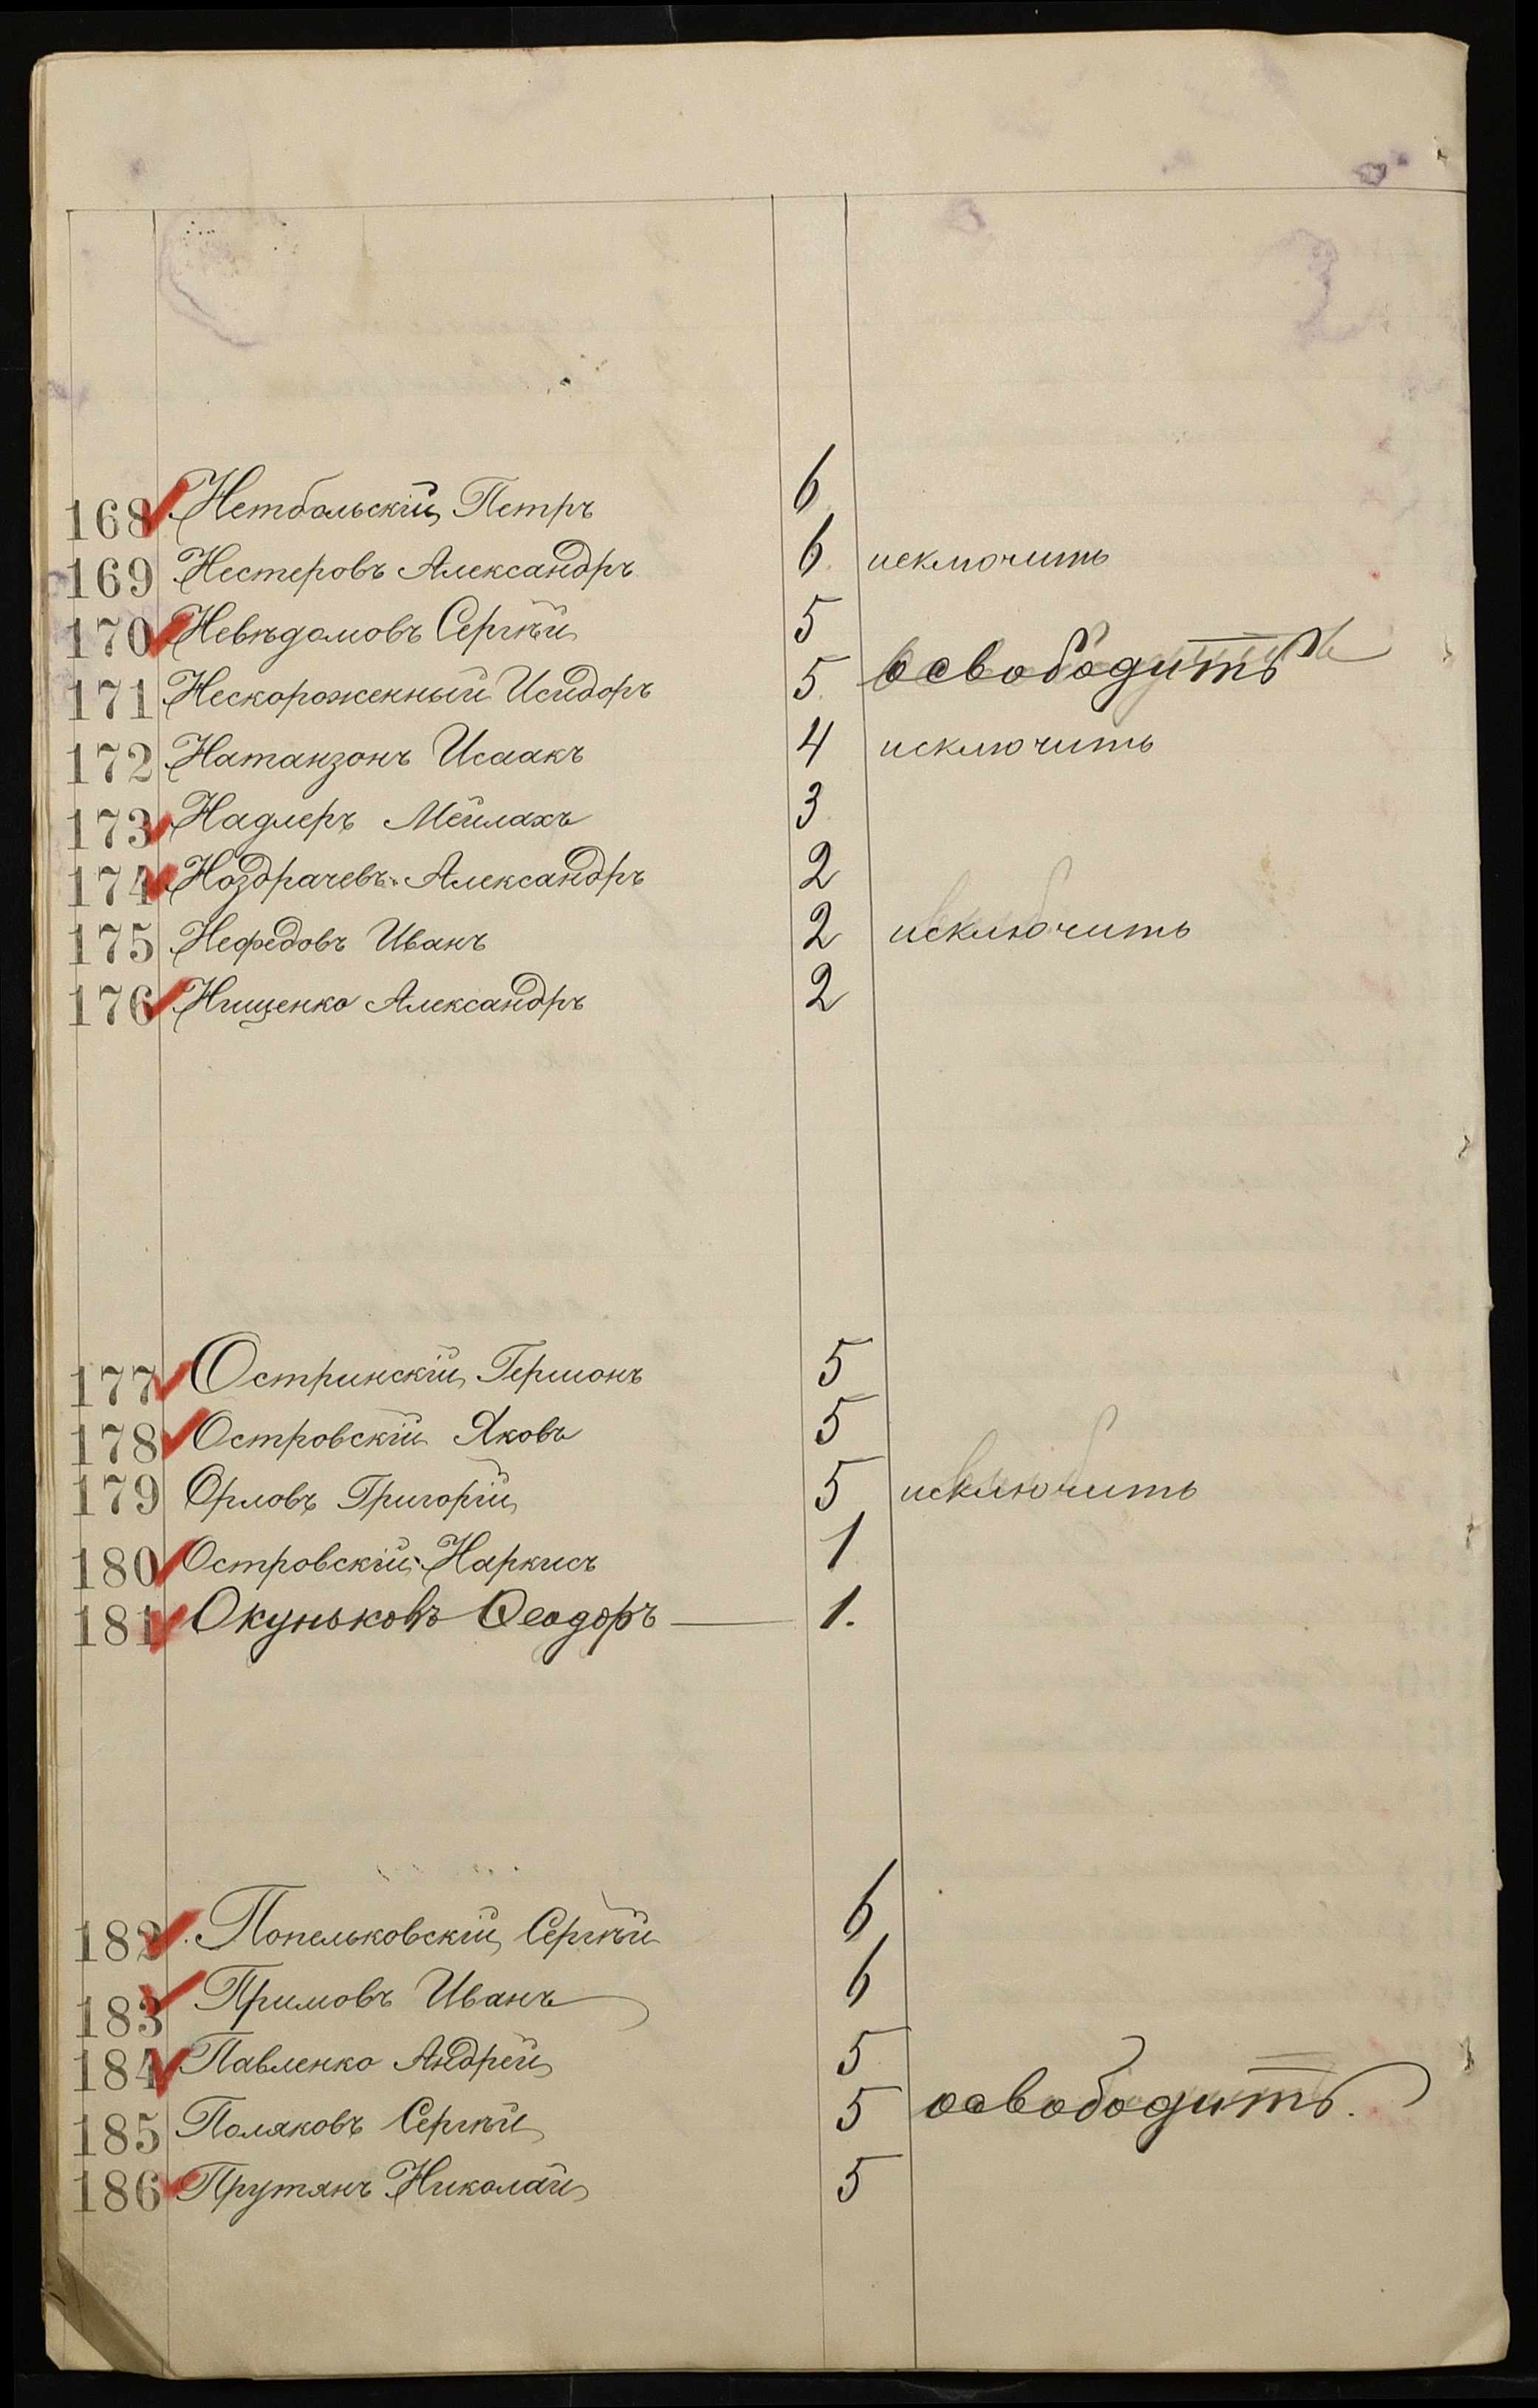 168 Нетбальскій Петръ 6
169 Нестеровъ Александръ 6. исключить
170 Невѣдомовъ Сергѣй 5
171 Нескороженный Исидоръ 5. освободить
172 Натанзонъ Исаакъ 4 исключить
173 Надлеръ Мейлахъ 3
174 Ноздрачевъ Александръ 2
175 Нефедовъ Иванъ 2 исключить
176 Нищенко Александръ 2
177 Остринскій Гершонъ 5
178 Островскій Яковъ 5
179 Орловъ Григорій 5 исключить
180 Островскій Наркисъ 1
181 Окуньковъ Ѳеодоръ — 1.
182 Попельковскій Сергѣй 6
183 Примовъ Иванъ 6
184 Павленко Андрей 5
185 Поляковъ Сергѣй 5 освободить.
186 Прутянъ Николай 5